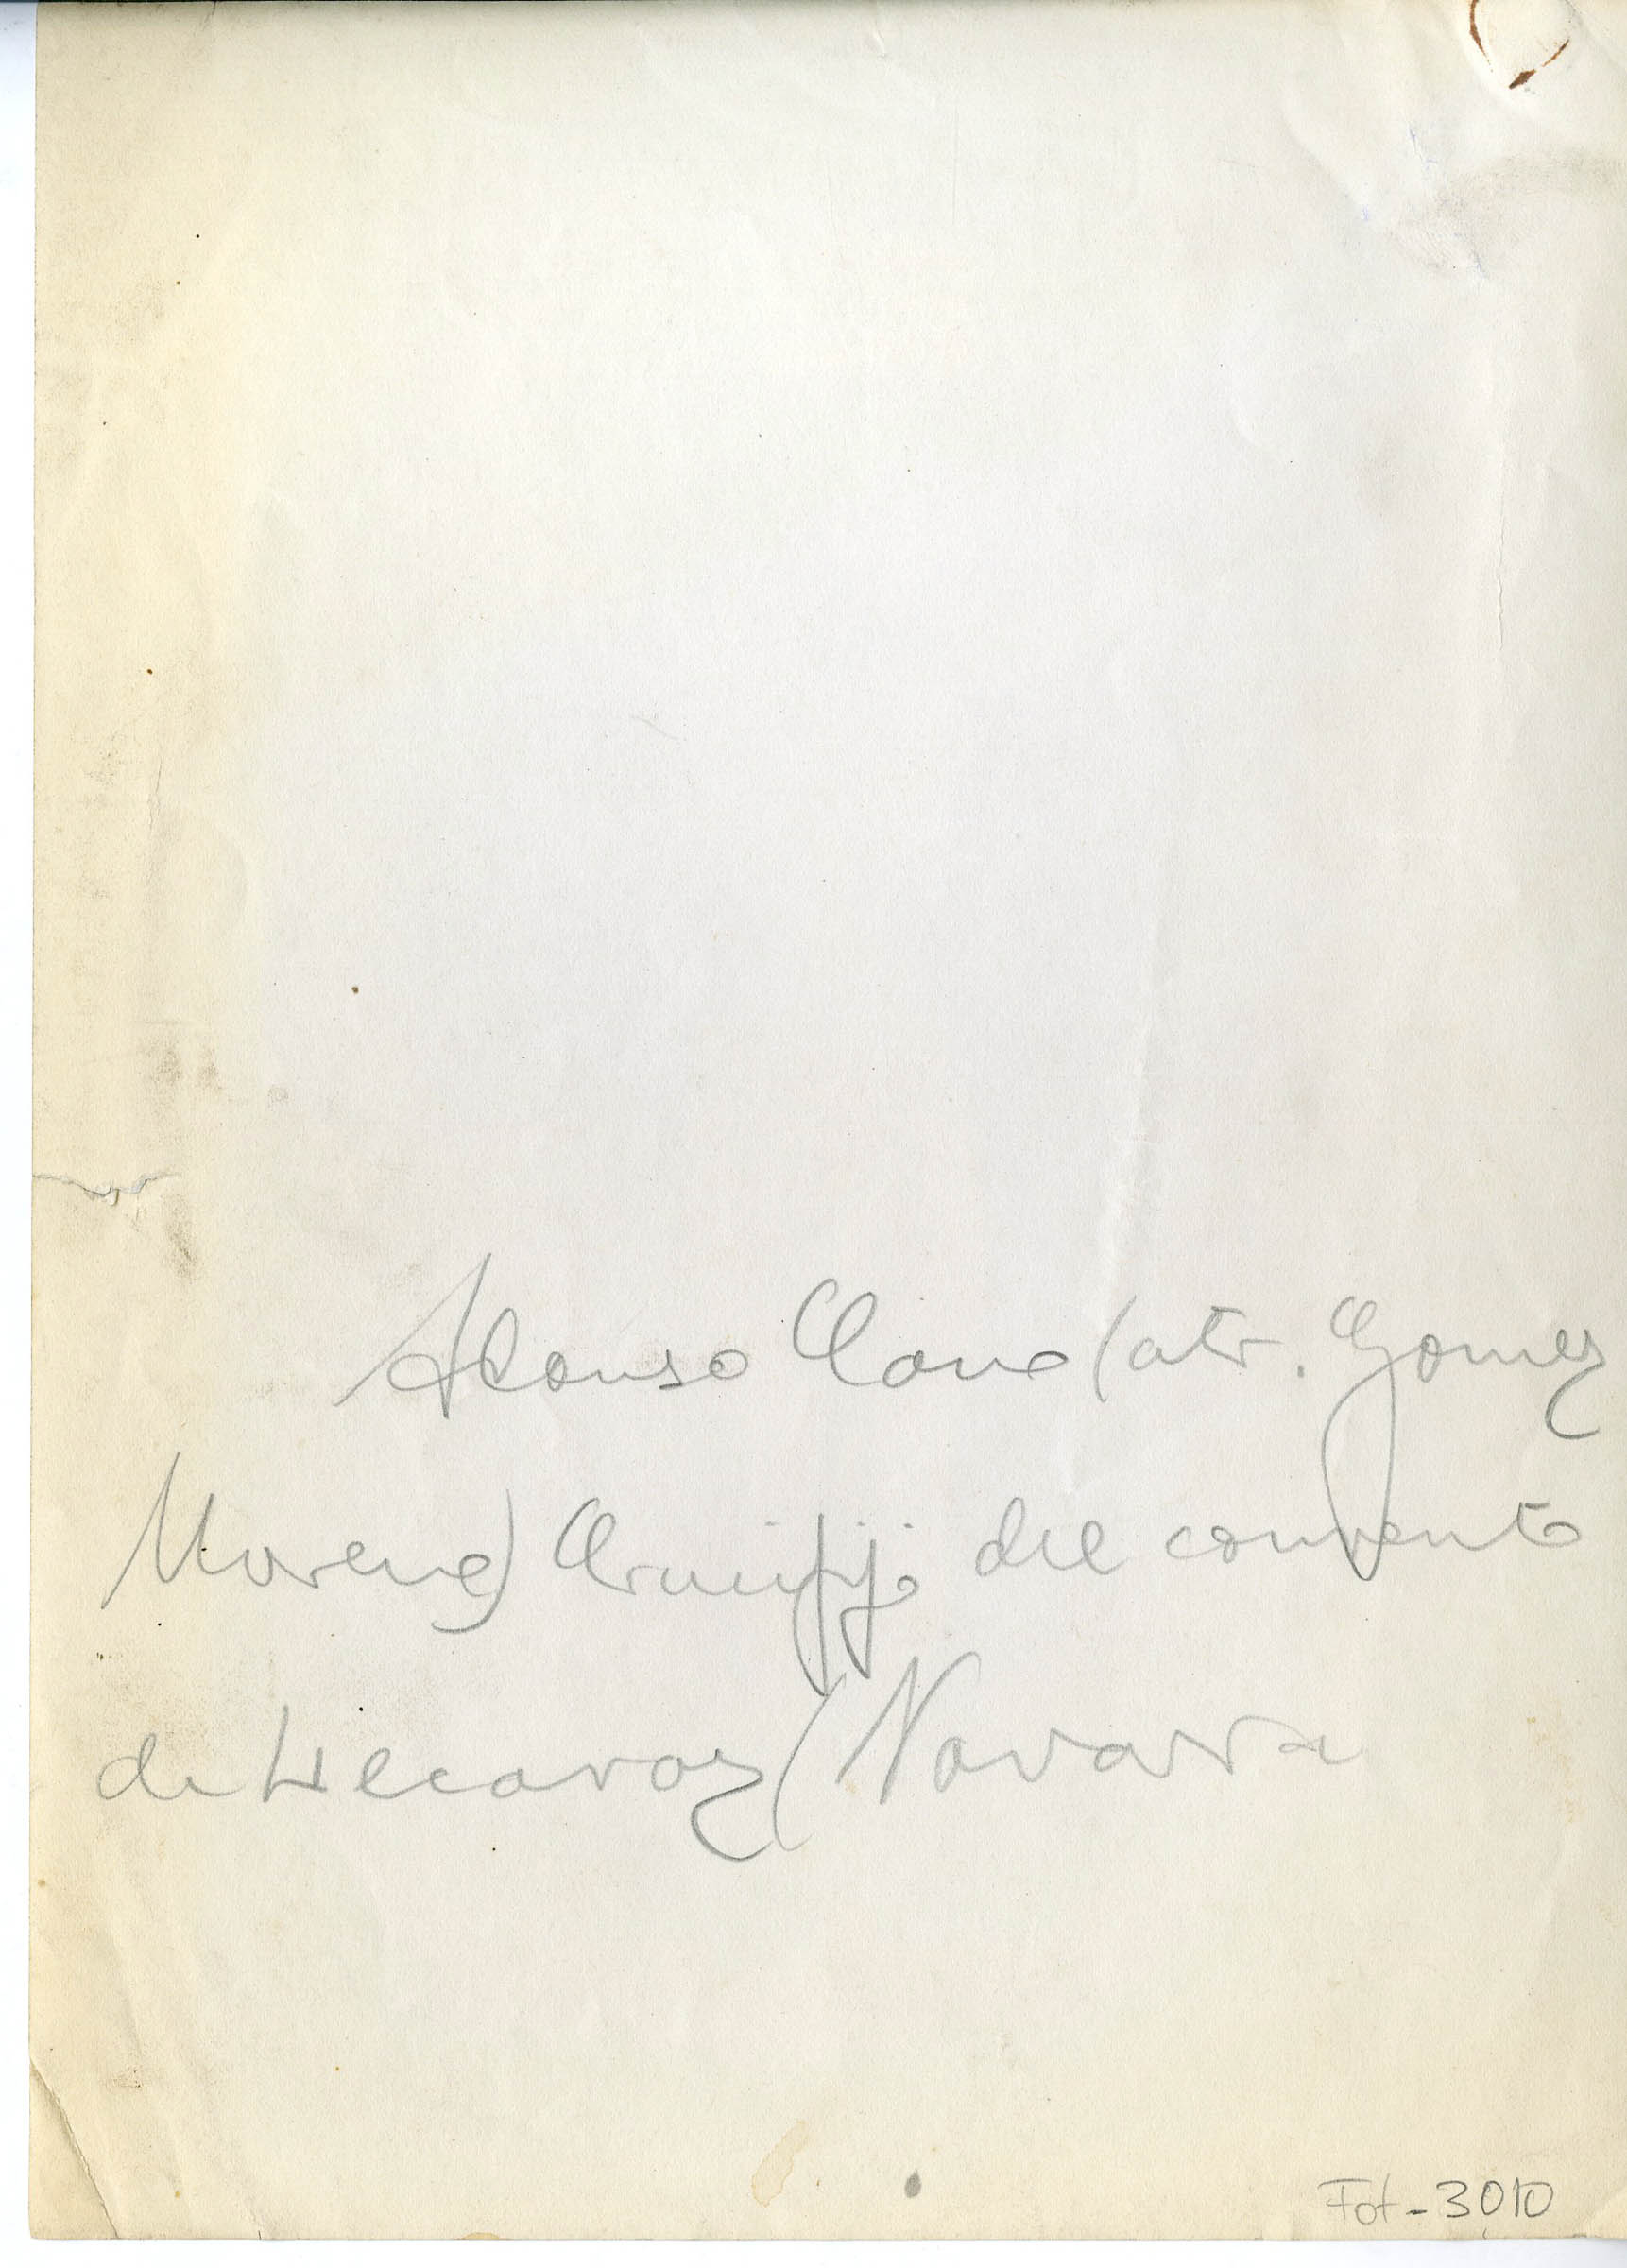 Alonso Cano (atr. Gomez
Moreno) Crucifijo del convento
de Lecaroz (Navarra
Fot-3010